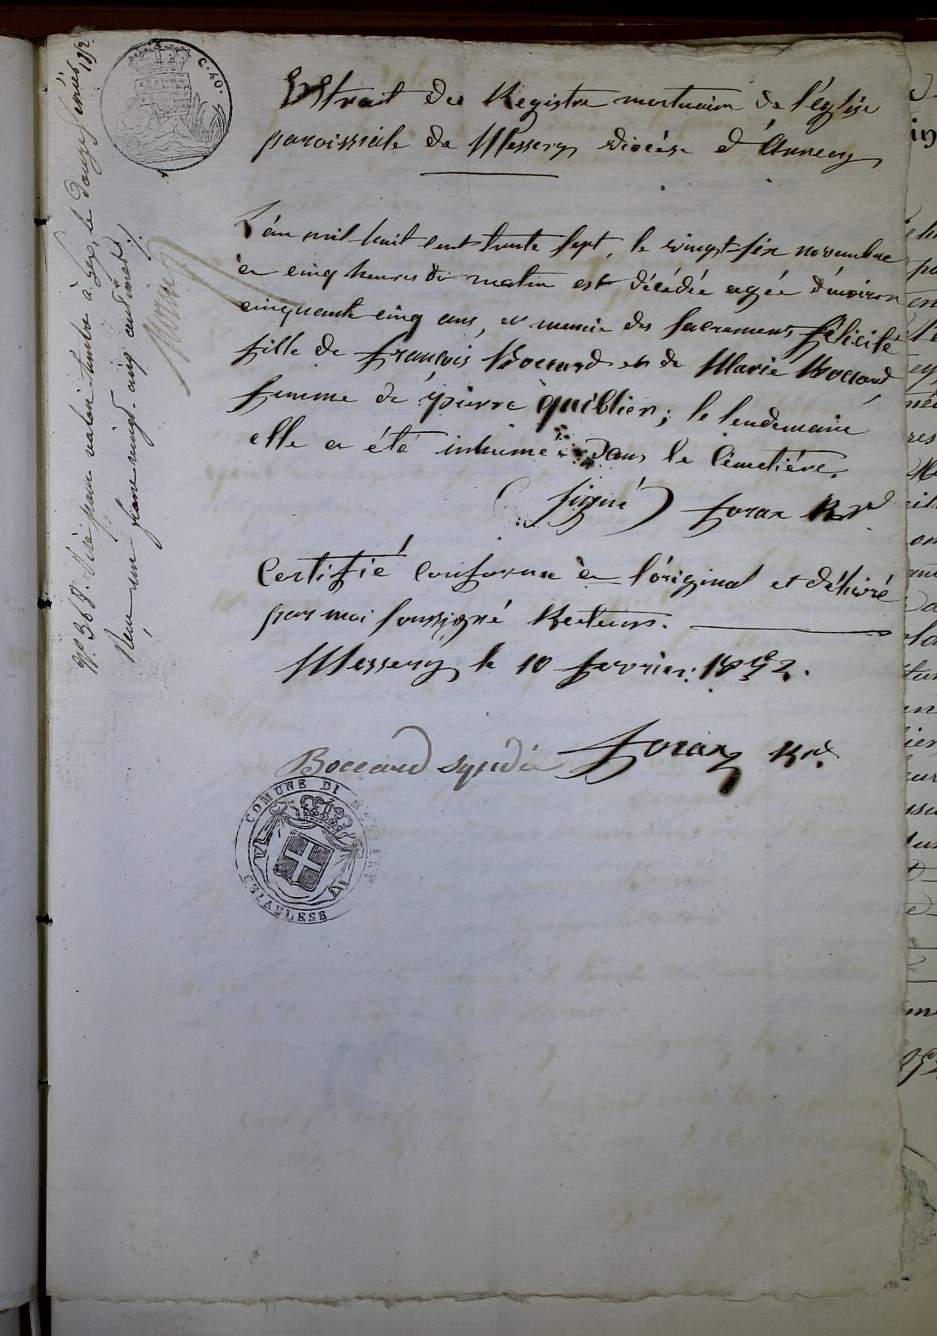 C. 40.
Extrait du Registre mortuaire de l'église
paroissiale de Messery diocèse d'Annecy
L'an mil huit cent trente sept, le vingt-six novembre
à cinq heures du matin est décédée agée d'environ
cinquante cinq ans, et munie des sacremens, félicité
fille de françois Boccard et de Marie Boccard,
femme de pierre quiblier; le lendemain
elle a été inhumée dans le Cimetière.
(signé) Rd
Certifié conforme à l'original et délivré
par moi soussigné Recteur.
Messery le 10 février 1852.
Boccard syndic Rd.
COMUNE DI MESSERY
CHIABLESE
N° 368. Visé pour valoir timbre à Gex, le douze février 1852.
Reçu un franc vingt-cinq centimes ./.